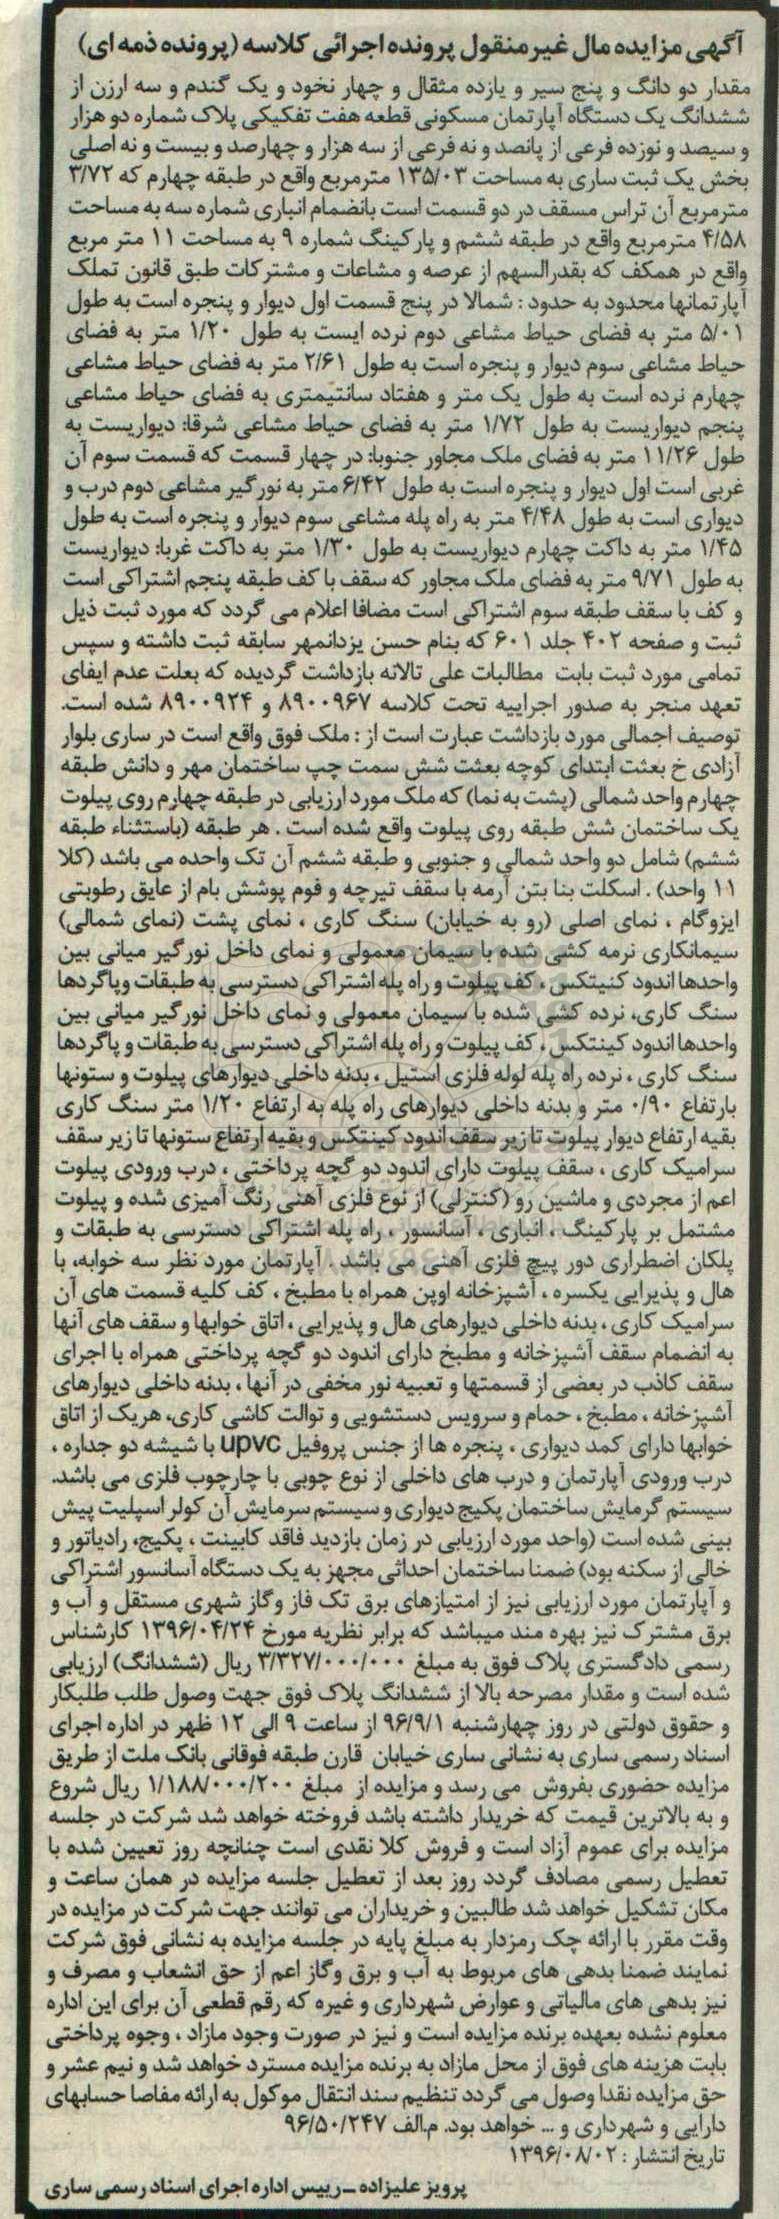 آگهی مزایده مال غیرمنقول پرونده اجرائی کلاسه (پرونده ذمه ای)
مقدار دو دانگ و پنج سیر و یازده مثقال و چهار نخود و یک گندم و سه ارزن از
ششدانگ یک دستگاه آپارتمان مسکونی قطعه هفت تفکیکی پلاک شماره دو هزار
و سیصد و نوزده فرعی از پانصد و نه فرعی از سه هزار و چهارصد و بیست و نه اصلی
بخش یک ثبت ساری به مساحت ۱۳۵/۰۳ مترمربع واقع در طبقه چهارم که ۳/۷۲
مترمربع آن تراس مسقف در دو قسمت است بانضمام انباری شماره سه به مساحت
۴/۵۸ مترمربع واقع در طبقه ششم و پارکینگ شماره ۹ به مساحت ۱۱ متر مربع
واقع در همکف که بقدرالسهم از عرصه و مشاعات و مشترکات طبق قانون تملک
آپارتمانها محدود به حدود : شمالا در پنج قسمت اول دیوار و پنجره است به طول
۵/۰۱ متر به فضای حیاط مشاعی دوم نرده ایست به طول ۱/۲۰ متر به فضای
حیاط مشاعی سوم دیوار و پنجره است به طول ۲/۶۱ متر به فضای حیاط مشاعی
چهارم نرده است به طول یک متر و هفتاد سانتیمتری به فضای حیاط مشاعی
پنجم دیواریست به طول ۱/۷۲ متر به فضای حیاط مشاعی شرقا: دیواریست به
طول ۱۱/۲۶ متر به فضای ملک مجاور جنوبا: در چهار قسمت که قسمت سوم آن
غربی است اول دیوار و پنجره است به طول ۶/۴۲ متر به نورگیر مشاعی دوم درب و
دیواری است به طول ۴/۴۸ متر به راه پله مشاعی سوم دیوار و پنجره است به طول
۱/۴۵ متر به داکت چهارم دیواریست به طول ۱/۳۰ متر به داکت غربا: دیواریست
به طول ۹/۷۱ متر به فضای ملک مجاور که سقف با کف طبقه پنجم اشتراکی است
و کف با سقف طبقه سوم اشتراکی است مضافا اعلام می گردد که مورد ثبت ذیل
ثبت و صفحه ۴۰۲ جلد ۶۰۱ که بنام حسن یزدانمهر سابقه ثبت داشته و سپس
تمامی مورد ثبت بابت مطالبات علی تالانه بازداشت گردیده که بعلت عدم ایفای
تعهد منجر به صدور اجراییه تحت کلاسه ۸۹۰۰۹۶۷ و ۸۹۰۰۹۲۴ شده است.
توصیف اجمالی مورد بازداشت عبارت است از : ملک فوق واقع است در ساری بلوار
آزادی خ بعثت ابتدای کوچه بعثت شش سمت چپ ساختمان مهر و دانش طبقه
چهارم واحد شمالی (پشت به نما) که ملک مورد ارزیابی در طبقه چهارم روی پیلوت
یک ساختمان شش طبقه روی پیلوت واقع شده است . هر طبقه (باستثناء طبقه
ششم) شامل دو واحد شمالی و جنوبی و طبقه ششم آن تک واحده می باشد (کلا
۱۱ واحد) . اسکلت بنا بتن آرمه با سقف تیرچه و فوم پوشش بام از عایق رطوبتی
ایزوگام ، نمای اصلی (رو به خیابان) سنگ کاری ، نمای پشت (نمای شمالی)
سیمانکاری نرمه کشی شده با سیمان معمولی و نمای داخل نورگیر میانی بین
واحدها اندود کنیتکس ، کف پیلوت و راه پله اشتراکی دسترسی به طبقات وپاگردها
سنگ کاری، نرده کشی شده با سیمان معمولی و نمای داخل نورگیر میانی بین
واحدها اندود کینتکس ، کف پیلوت و راه پله اشتراکی دسترسی به طبقات و پاگردها
سنگ کاری ، نرده راه پله لوله فلزی استیل ، بدنه داخلی دیوارهای پیلوت و ستونها
بارتفاع ۰/۹۰ متر و بدنه داخلی دیوارهای راه پله به ارتفاع ۱/۲۰ متر سنگ کاری
بقیه ارتفاع دیوار پیلوت تا زیر سقف اندود کینتکس و بقیه ارتفاع ستونها تا زیر سقف
سرامیک کاری ، سقف پیلوت دارای اندود دو گچه پرداختی ، درب ورودی پیلوت
اعم از مجردی و ماشین رو (کنترلی) از نوع فلزی آهنی رنگ آمیزی شده و پیلوت
مشتمل بر پارکینگ ، انباری ، آسانسور ، راه پله اشتراکی دسترسی به طبقات و
پلکان اضطراری دور پیچ فلزی آهنی می باشد . آپارتمان مورد نظر سه خوابه، با
هال و پذیرایی یکسره ، آشپزخانه اوپن همراه با مطبخ ، کف کلیه قسمت های آن
سرامیک کاری ، بدنه داخلی دیوارهای هال و پذیرایی ، اتاق خوابها و سقف های آنها
به انضمام سقف آشپزخانه و مطبخ دارای اندود دو گچه پرداختی همراه با اجرای
سقف کاذب در بعضی از قسمتها و تعبیه نور مخفی در آنها ، بدنه داخلی دیوارهای
آشپزخانه ، مطبخ ، حمام و سرویس دستشویی و توالت کاشی کاری، هریک از اتاق
خوابها دارای کمد دیواری ، پنجره ها از جنس پروفیل upvc با شیشه دو جداره ،
درب ورودی آپارتمان و درب های داخلی از نوع چوبی با چارچوب فلزی می باشد.
سیستم گرمایش ساختمان پکیج دیواری و سیستم سرمایش آن کولر اسپلیت پیش
بینی شده است (واحد مورد ارزیابی در زمان بازدید فاقد کابینت ، پکیج، رادیاتور و
خالی از سکنه بود) ضمنا ساختمان احداثی مجهز به یک دستگاه آسانسور اشتراکی
و آپارتمان مورد ارزیابی نیز از امتیازهای برق تک فاز وگاز شهری مستقل و آب و
برق مشترک نیز بهره مند میباشد که برابر نظریه مورخ ۱۳۹۶/۰۴/۲۴ کارشناس
رسمی دادگستری پلاک فوق به مبلغ ۳/۳۲۷/۰۰۰/۰۰۰ ریال (ششدانگ) ارزیابی
شده است و مقدار مصرحه بالا از ششدانگ پلاک فوق جهت وصول طلب طلبکار
و حقوق دولتی در روز چهارشنبه ۹۶/۹/۱ از ساعت ۹ الی ۱۲ ظهر در اداره اجرای
اسناد رسمی ساری به نشانی ساری خیابان قارن طبقه فوقانی بانک ملت از طریق
مزایده حضوری بفروش می رسد و مزایده از مبلغ ۱/۱۸۸/۰۰۰/۲۰۰ ریال شروع
و به بالاترین قیمت که خریدار داشته باشد فروخته خواهد شد شرکت در جلسه
مزایده برای عموم آزاد است و فروش کلا نقدی است چنانچه روز تعیین شده با
تعطیل رسمی مصادف گردد روز بعد از تعطیل جلسه مزایده در همان ساعت و
مکان تشکیل خواهد شد طالبین و خریداران می توانند جهت شرکت در مزایده در
وقت مقرر با ارائه چک رمزدار به مبلغ پایه در جلسه مزایده به نشانی فوق شرکت
نمایند ضمنا بدهی های مربوط به آب و برق وگاز اعم از حق انشعاب و مصرف و
نیز بدهی های مالیاتی و عوارض شهرداری و غیره که رقم قطعی آن برای این اداره
معلوم نشده بعهده برنده مزایده است و نیز در صورت وجود مازاد ، وجوه پرداختی
بابت هزینه های فوق از محل مازاد به برنده مزایده مسترد خواهد شد و نیم عشر و
حق مزایده نقدا وصول می گردد تنظیم سند انتقال موکول به ارائه مفاصا حسابهای
دارایی و شهرداری و ... خواهد بود. م.الف ۹۶/۵۰/۲۴۷
تاریخ انتشار : ۱۳۹۶/۰۸/۰۲
پرویز علیزاده _ رییس اداره اجرای اسناد رسمی ساری